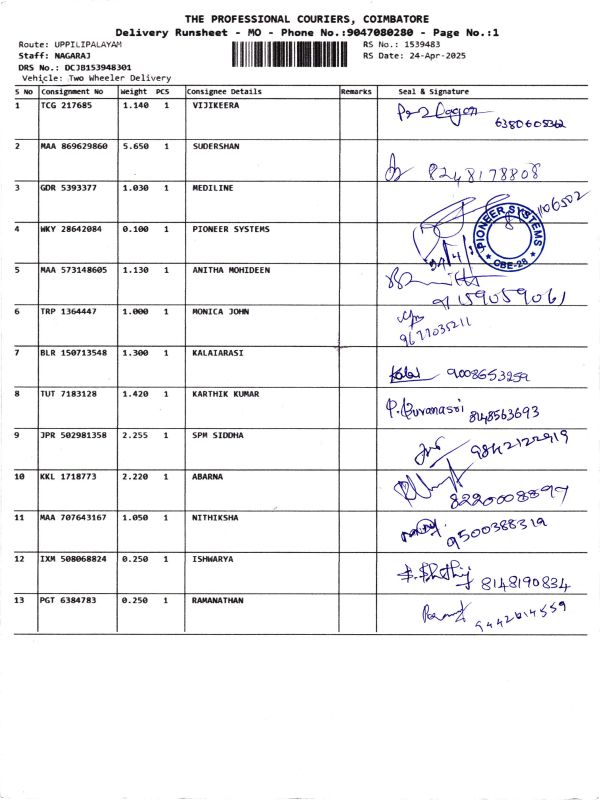 THE PROFESSIONAL COURIERS, COIMBATORE
Delivery Runsheet - MO - Phone No.:9047080280 - Page No.:1
Route: UPPILIPALAYAM RS No.: 1539483
Staff: NAGARAJ RS Date: 24-Apr-2025
DRS No.: DCJB153948301
Vehicle: Two Wheeler Delivery
S No Consignment No Weight PCS Consignee Details Remarks Seal & Signature
1 TCG 217685 1.140 1 VIJIKEERA
6380605362
2 MAA 869629860 5.650 1 SUDERSHAN
8248178808
3 GDR 5393377 1.030 1 MEDILINE
4 WKY 28642084 0.100 1 PIONEER SYSTEMS
PIONEER SYSTEMS
CBE-28
5 MAA 573148605 1.130 1 ANITHA MOHIDEEN
9159059061
6 TRP 1364447 1.000 1 MONICA JOHN
9677035211
7 BLR 150713548 1.300 1 KALAIARASI
Kalai 9008653259
8 TUT 7183128 1.420 1 KARTHIK KUMAR
P. Buvanasri 8148563693
9 JPR 502981358 2.255 1 SPM SIDDHA
9842122919
10 KKL 1718773 2.220 1 ABARNA
8220008897
11 MAA 707643167 1.050 1 NITHIKSHA
9500388319
12 IXM 508068824 0.250 1 ISHWARYA
8148190834
13 PGT 6384783 0.250 1 RAMANATHAN
9442614559